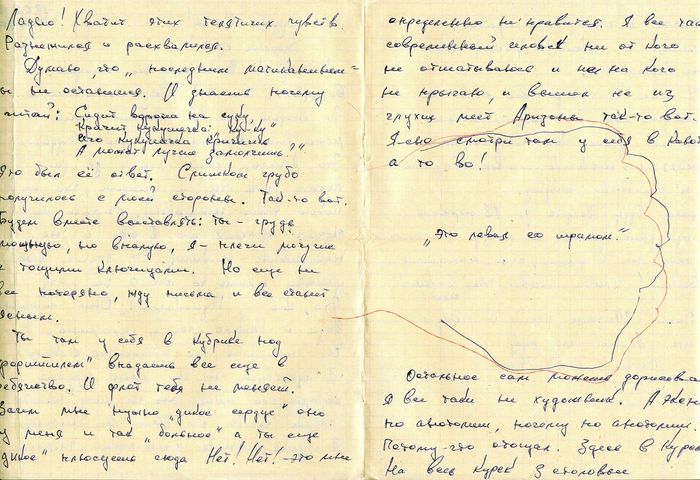 Ладно! Хватит этих телячьих чувств.
Разнылся и расхвалился.
Думаю, что „последним магиканином"
вы не остались. И знаешь почему
читай: Сидит ворона на суку.
Кричит кукушечка: „Ку-ку"
кукушечка кричишь
А может лучше замолчишь?"
Это был её ответ. Слишком грубо
получилось с моей стороны. Так-то вот.
Будем вместе выставлять: ты - грудь
мощную, но впалую, я - плечи могучие
с тощими ключицами. Но еще не
все потеряно, жду письма и все станет
ясным.
Ты там у себя в Кубрике под
вкадаешь все еще в
ребячество. И флот тебя не меняет.
Зачем мне нужно „дикое сердце" оно
у меня и так „больное" а ты еще
„дикое" сюда Нет! Нет! - это мне
определенно не нравится. Я все так
современный человек ни от кого
не отшатываюсь и ни на кого
не прыгаю, и вышел не из
глухих мест Аризоны так-то вот.
Я-сво смотри там у себя в
а то во!
„это левая со шрамом"
Остальное сам можешь дорисовать
Я все таки не художник. А
но анатомии, почему по анатомии.
Потому-что отощал. Здесь в Курск
На весь Курск 3 столовые